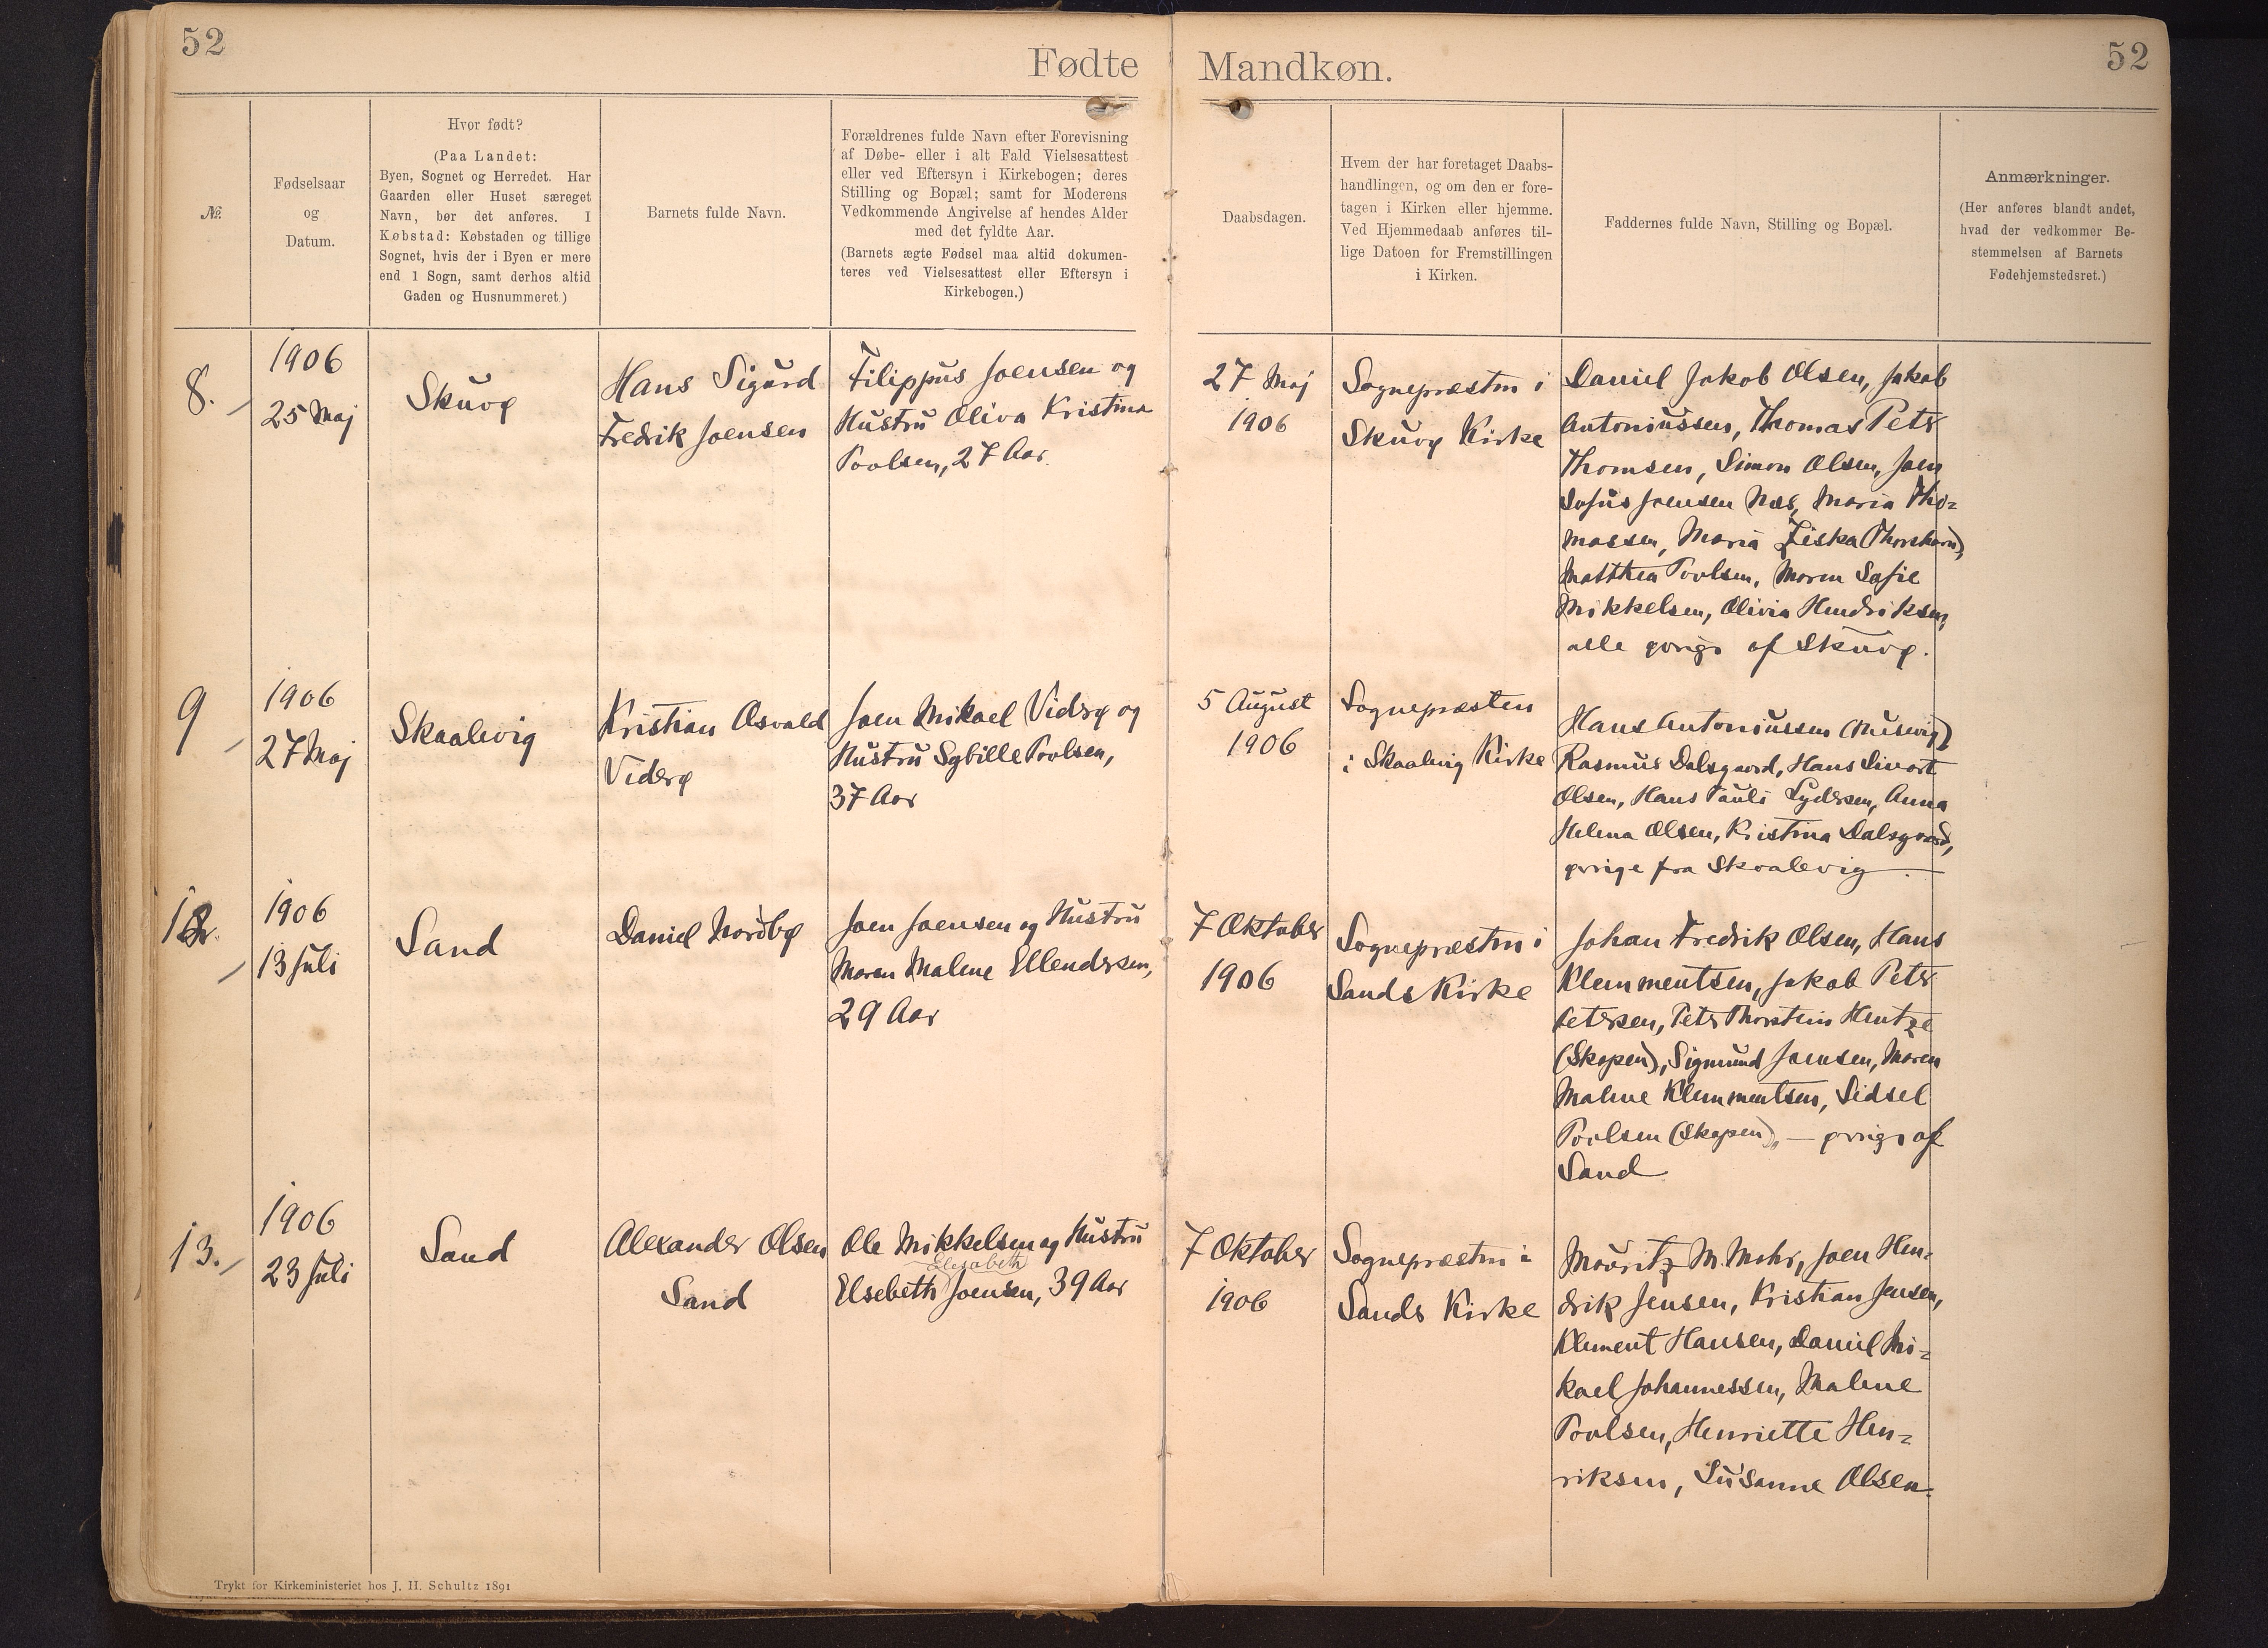 52
Fødte
Mandkøn.
52
№.
Fødselsaar
og
Datum.
Hvor født?
(Paa Landet:
Byen, Sognet og Herredet. Har
Gaarden eller Huset særeget
Navn, bør det anføres. I
Købstad: Købstaden og tillige
Sognet, hvis der i Byen er mere
end 1 Sogn, samt derhos altid
Gaden og Husnummeret.)
Barnets fulde Navn.
Forældrenes fulde Navn efter Forevisning
af Døbe- eller i alt Fald Vielsesattest
eller ved Eftersyn i Kirkebogen; deres
Stilling og Bopæl; samt for Moderens
Vedkommende Angivelse af hendes Alder
med det fyldte Aar.
(Barnets ægte Fødsel maa altid dokumen-
teres ved Vielsesattest eller Eftersyn i
Kirkebogen.)
Daabsdagen.
Hvem der har foretaget Daabs-
handlingen, og om den er fore-
tagen i Kirken eller hjemme.
Ved Hjemmedaab anføres til-
lige Datoen for Fremstillingen
i Kirken.
Faddernes fulde Navn, Stilling og Bopæl.
Anmærkninger.
(Her anføres blandt andet,
hvad der vedkommer Be-
stemmelsen af Barnets
Fødehjemstedsret.)
8.
1906
25 Maj
Skuvø
Hans Sigurd
Fredrik Joensen
Filippus Joensen og
Hustru Oliva Kristina
Poulsen, 27 Aar
27 Maj
1906
Sognepræsten i
Skuvø Kirke
Daniel Jakob Olsen, Jakob
Antoniussen, Thomas Peter
Thomsen, Simon Olsen, Joen
Sofus Joensen Næs, Maria Tho-
massen, Maria Ziska (Thorshavn),
Matthea Poulsen, Maren Sofie
Mikkelsen, Olivia Hendriksen,
alle øvrige af Skuvø.
9
1906
27 Maj
Skaalevig
Kristian Osvald
Viderø
Joen Mikael Viderø og
Hustru Sybille Poulsen,
37 Aar
5 August
1906
Sognepræsten
i Skaalevig Kirke
Hans Antoniussen (Husevig)
Rasmus Dalsgaard, Hans Sivert
Olsen, Hans Pauli Lydersen, Anna
Helena Olsen, Kristina Dalsgaard,
øvrige fra Skaalevig
12.
1906
13 Juli
Sand
Daniel Nordbø
Joen Joensen og Hustru
Maren Malene Ellendersen,
29 Aar
7 Oktober
1906
Sognepræsten i
Sands Kirke
Johan Fredrik Olsen, Hans
Klemmentsen, Jakob Peter
Petersen, Peter Thorstein Hentze
(Skopen), Sigmund Joensen, Maren
Malene Klemmentsen, Sidsel
Poulsen (Skopen), — øvrige af
Sand
13.
1906
23 Juli
Sand
Alexander Olsen
Sand
Ole Mikkelsen og Hustru
Elisabeth
Elsebeth Joensen, 39 Aar
7 Oktober
1906
Sognepræsten i
Sands Kirke
Mouritz M. Mohr, Joen Hen-
drik Jensen, Kristian Jensen,
Klement Hansen, Daniel Mi-
kael Johannessen, Malene
Poulsen, Henriette Hen-
riksen, Susanne Olsen.
Trykt for Kirkeministeriet hos J. H. Schultz 1891